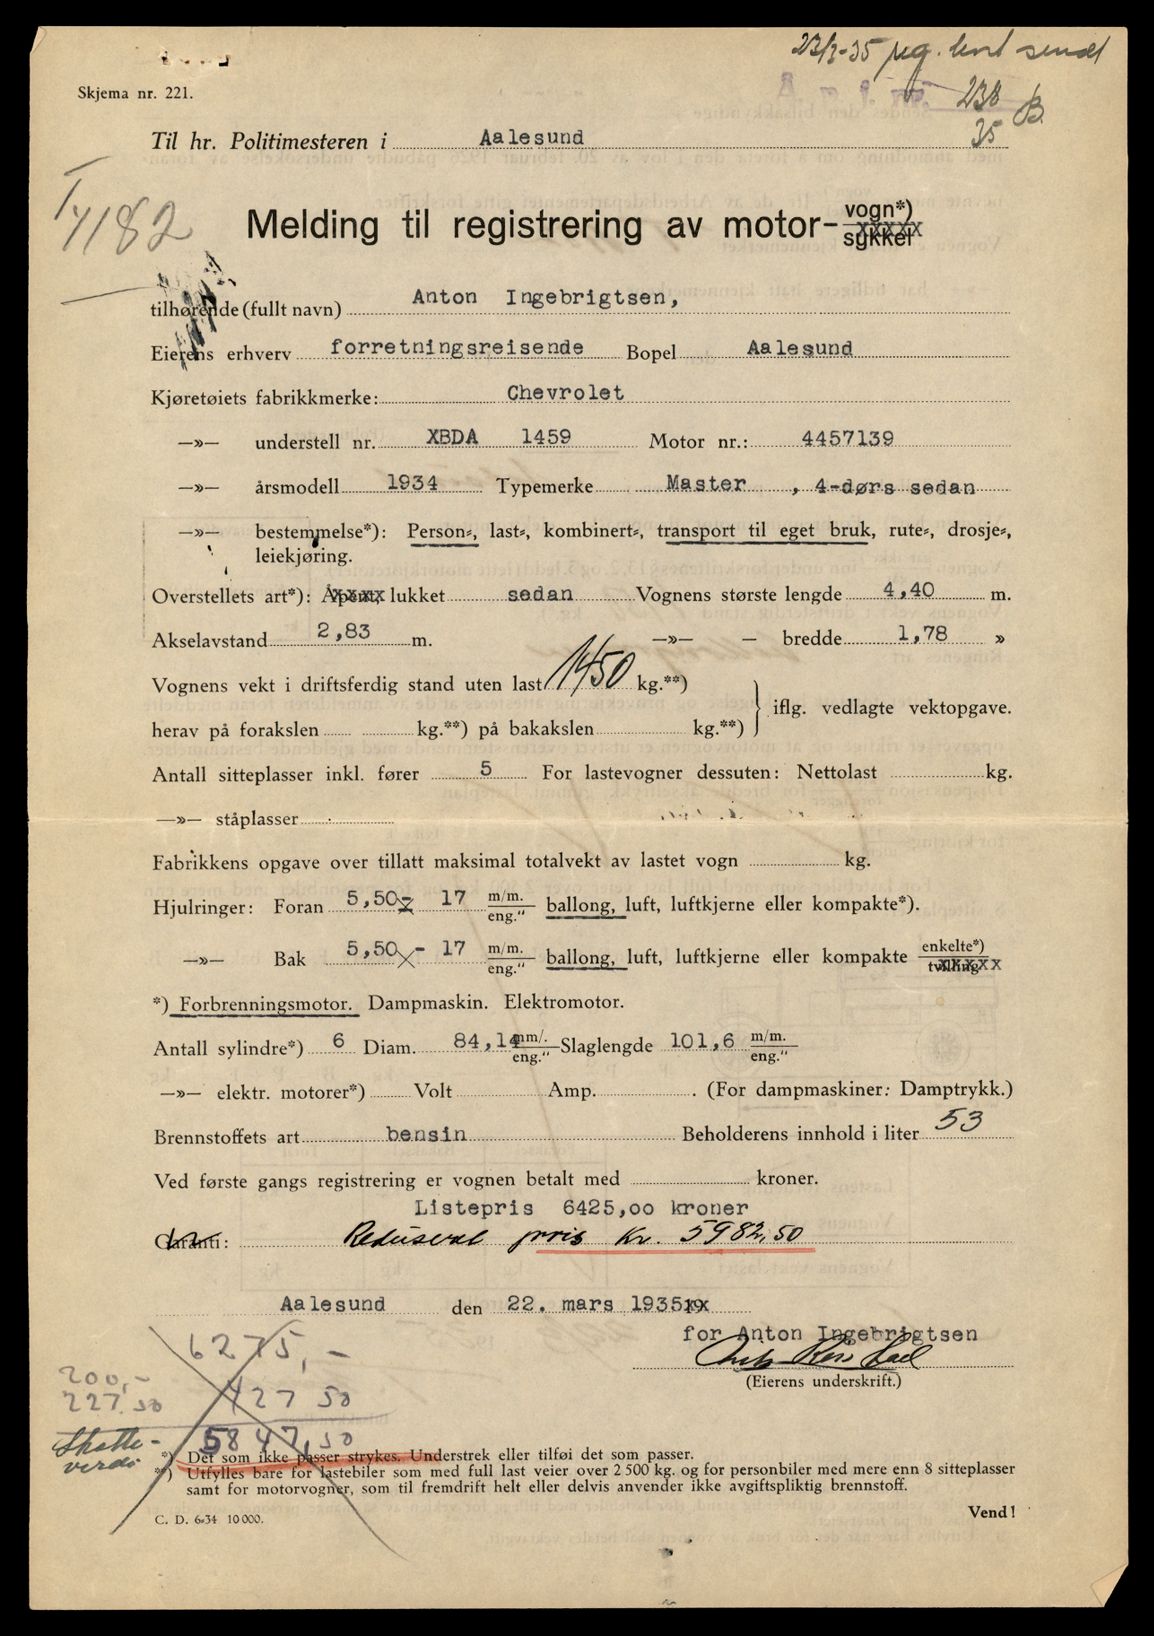 23/3-35 reg. kort sendt
Skjema nr. 221.
238
35
B.
Til hr. Politimesteren i Aalesund
T 4182
Melding til registrering av motor- vogn*)
sykkel
tilhørende (fullt navn) Anton Ingebrigtsen,
Eierens erhverv forretningsreisende Bopel Aalesund
Kjøretøiets fabrikkmerke: Chevrolet
—»— understell nr. XBDA 1459 Motor nr.: 4457139
—»— årsmodell 1934 Typemerke Master , 4-dørs sedan
—»— bestemmelse*): Person-, last-, kombinert-, transport til eget bruk, rute-, drosje-,
leiekjøring.
Overstellets art*): Åpent, lukket sedan Vognens største lengde 4,40 m.
Akselavstand 2,83 m. —»— — bredde 1,78 »
Vognens vekt i driftsferdig stand uten last 1450 kg.**)
iflg. vedlagte vektopgave.
herav på forakslen kg.**) på bakakslen kg.**)
Antall sitteplasser inkl. fører 5 For lastevogner dessuten: Nettolast kg.
—»— ståplasser
Fabrikkens opgave over tillatt maksimal totalvekt av lastet vogn kg.
Hjulringer: Foran 5,50- 17 m/m. eng." ballong, luft, luftkjerne eller kompakte*).
—»— Bak 5,50 - 17 m/m. eng." ballong, luft, luftkjerne eller kompakte enkelte*)
tvilling
*) Forbrenningsmotor. Dampmaskin. Elektromotor.
Antall sylindre*) 6 Diam. 84,14 mm/. eng." Slaglengde 101,6 m/m. eng."
—»— elektr. motorer*) Volt Amp. . (For dampmaskiner: Damptrykk.)
Brennstoffets art bensin Beholderens innhold i liter 53
Ved første gangs registrering er vognen betalt med kroner.
Listepris 6425,oo kroner
Garanti: Redusert pris kr. 5982,50
Aalesund den 22. mars 1935 19
for Anton Ingebrigtsen
(Eierens underskrift.)
6275,-
200,-
227.50 427 50
5847,50
Skatte-
verdi
*) Det som ikke passer strykes. Understrek eller tilføi det som passer.
**) Utfylles bare for lastebiler som med full last veier over 2 500 kg. og for personbiler med mere enn 8 sitteplasser
samt for motorvogner, som til fremdrift helt eller delvis anvender ikke avgiftspliktig brennstoff.
C. D. 6-34 10 000.
Vend!